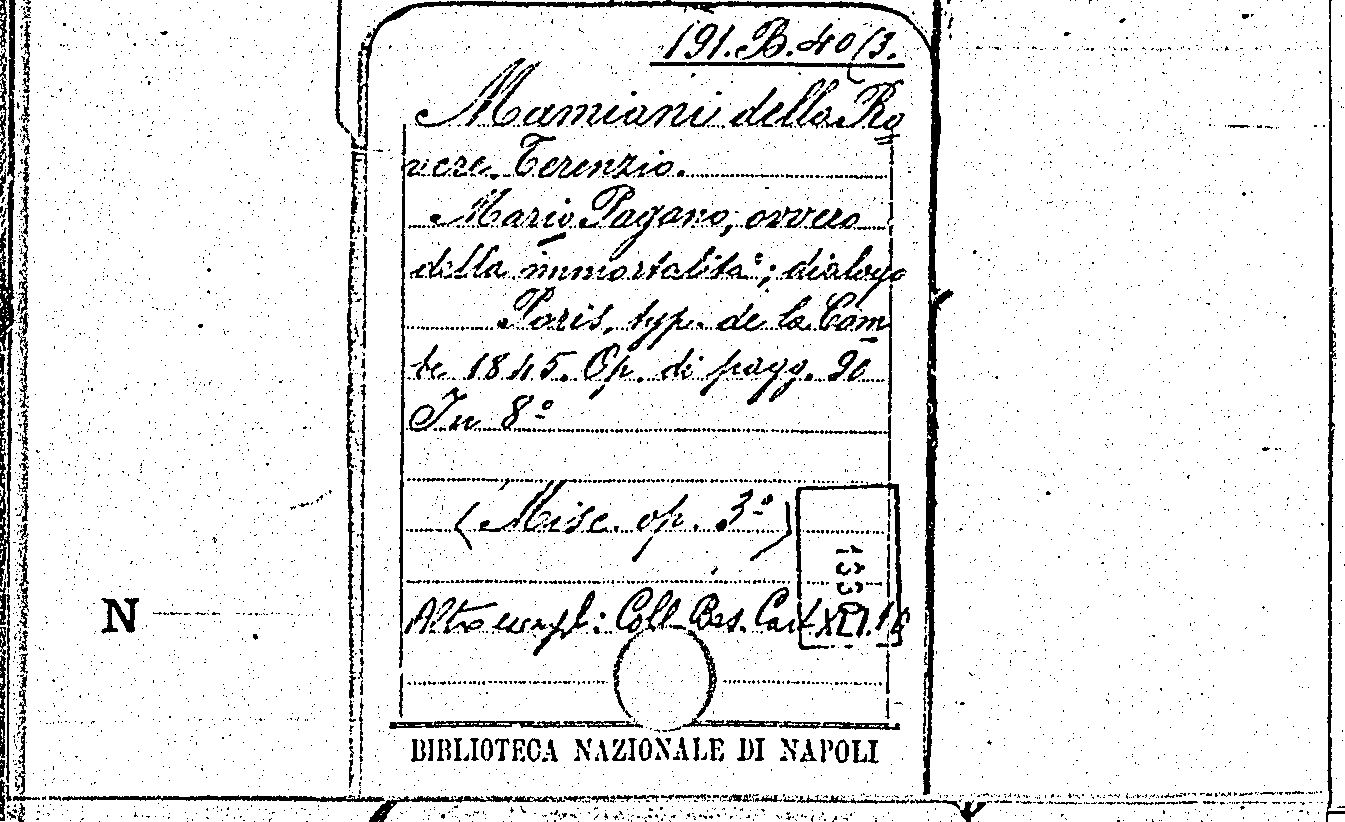 191.B.40(3.
Mamiani della Ro
vere Terenzio.
Mario Pagano, ovvero
della immortalità; dialogo
Paris, typ. de la Com
te 1845. Op. di pagg. 90
In 8º
(Misc. op. 3º)
Altro esempl: Coll. Bes. Cart
N
BIBLIOTECA NAZIONALE DI NAPOLI